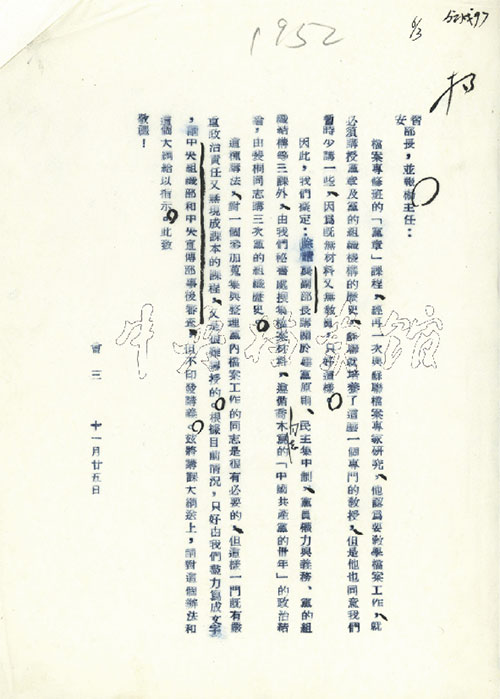 1952
楊
部長，並報楊主任：
檔案專修班的「黨章」課程，經再一次與蘇聯檔案專家研究，他認爲要教學檔案工作，就
必須講授黨章及黨的組織機構的歷史，蘇聯就培養了這麽一個專門的教授，但是他也同意我們
暫時少講一些，因爲既無材料又無教員，只好這樣。
因此，我們擬定：除請副部長講關於建黨原則、民主集中制、黨員權力與義務、黨的組
織結構等三課外，由我們秘書處搜集檔案材料，喬木寫的「中國共產黨的卅年」的政治結
，由裴桐同志講三次黨的組織歷史。
這種講法，對一個參加蒐集與整理黨內檔案工作的同志是很有必要的，但這樣一門既有嚴
重政治責任又無現成課本的課程，又是很難講授的。根據目前情況，只好由我們盡力寫成文字
，請中央組織部和中央宣傳部事後審查，但不印發講義。茲將講課大綱送上，請對這個辦法和
這個大綱給以指示。此致
敬禮！
曾三
十一月廿五日
中央檔案館